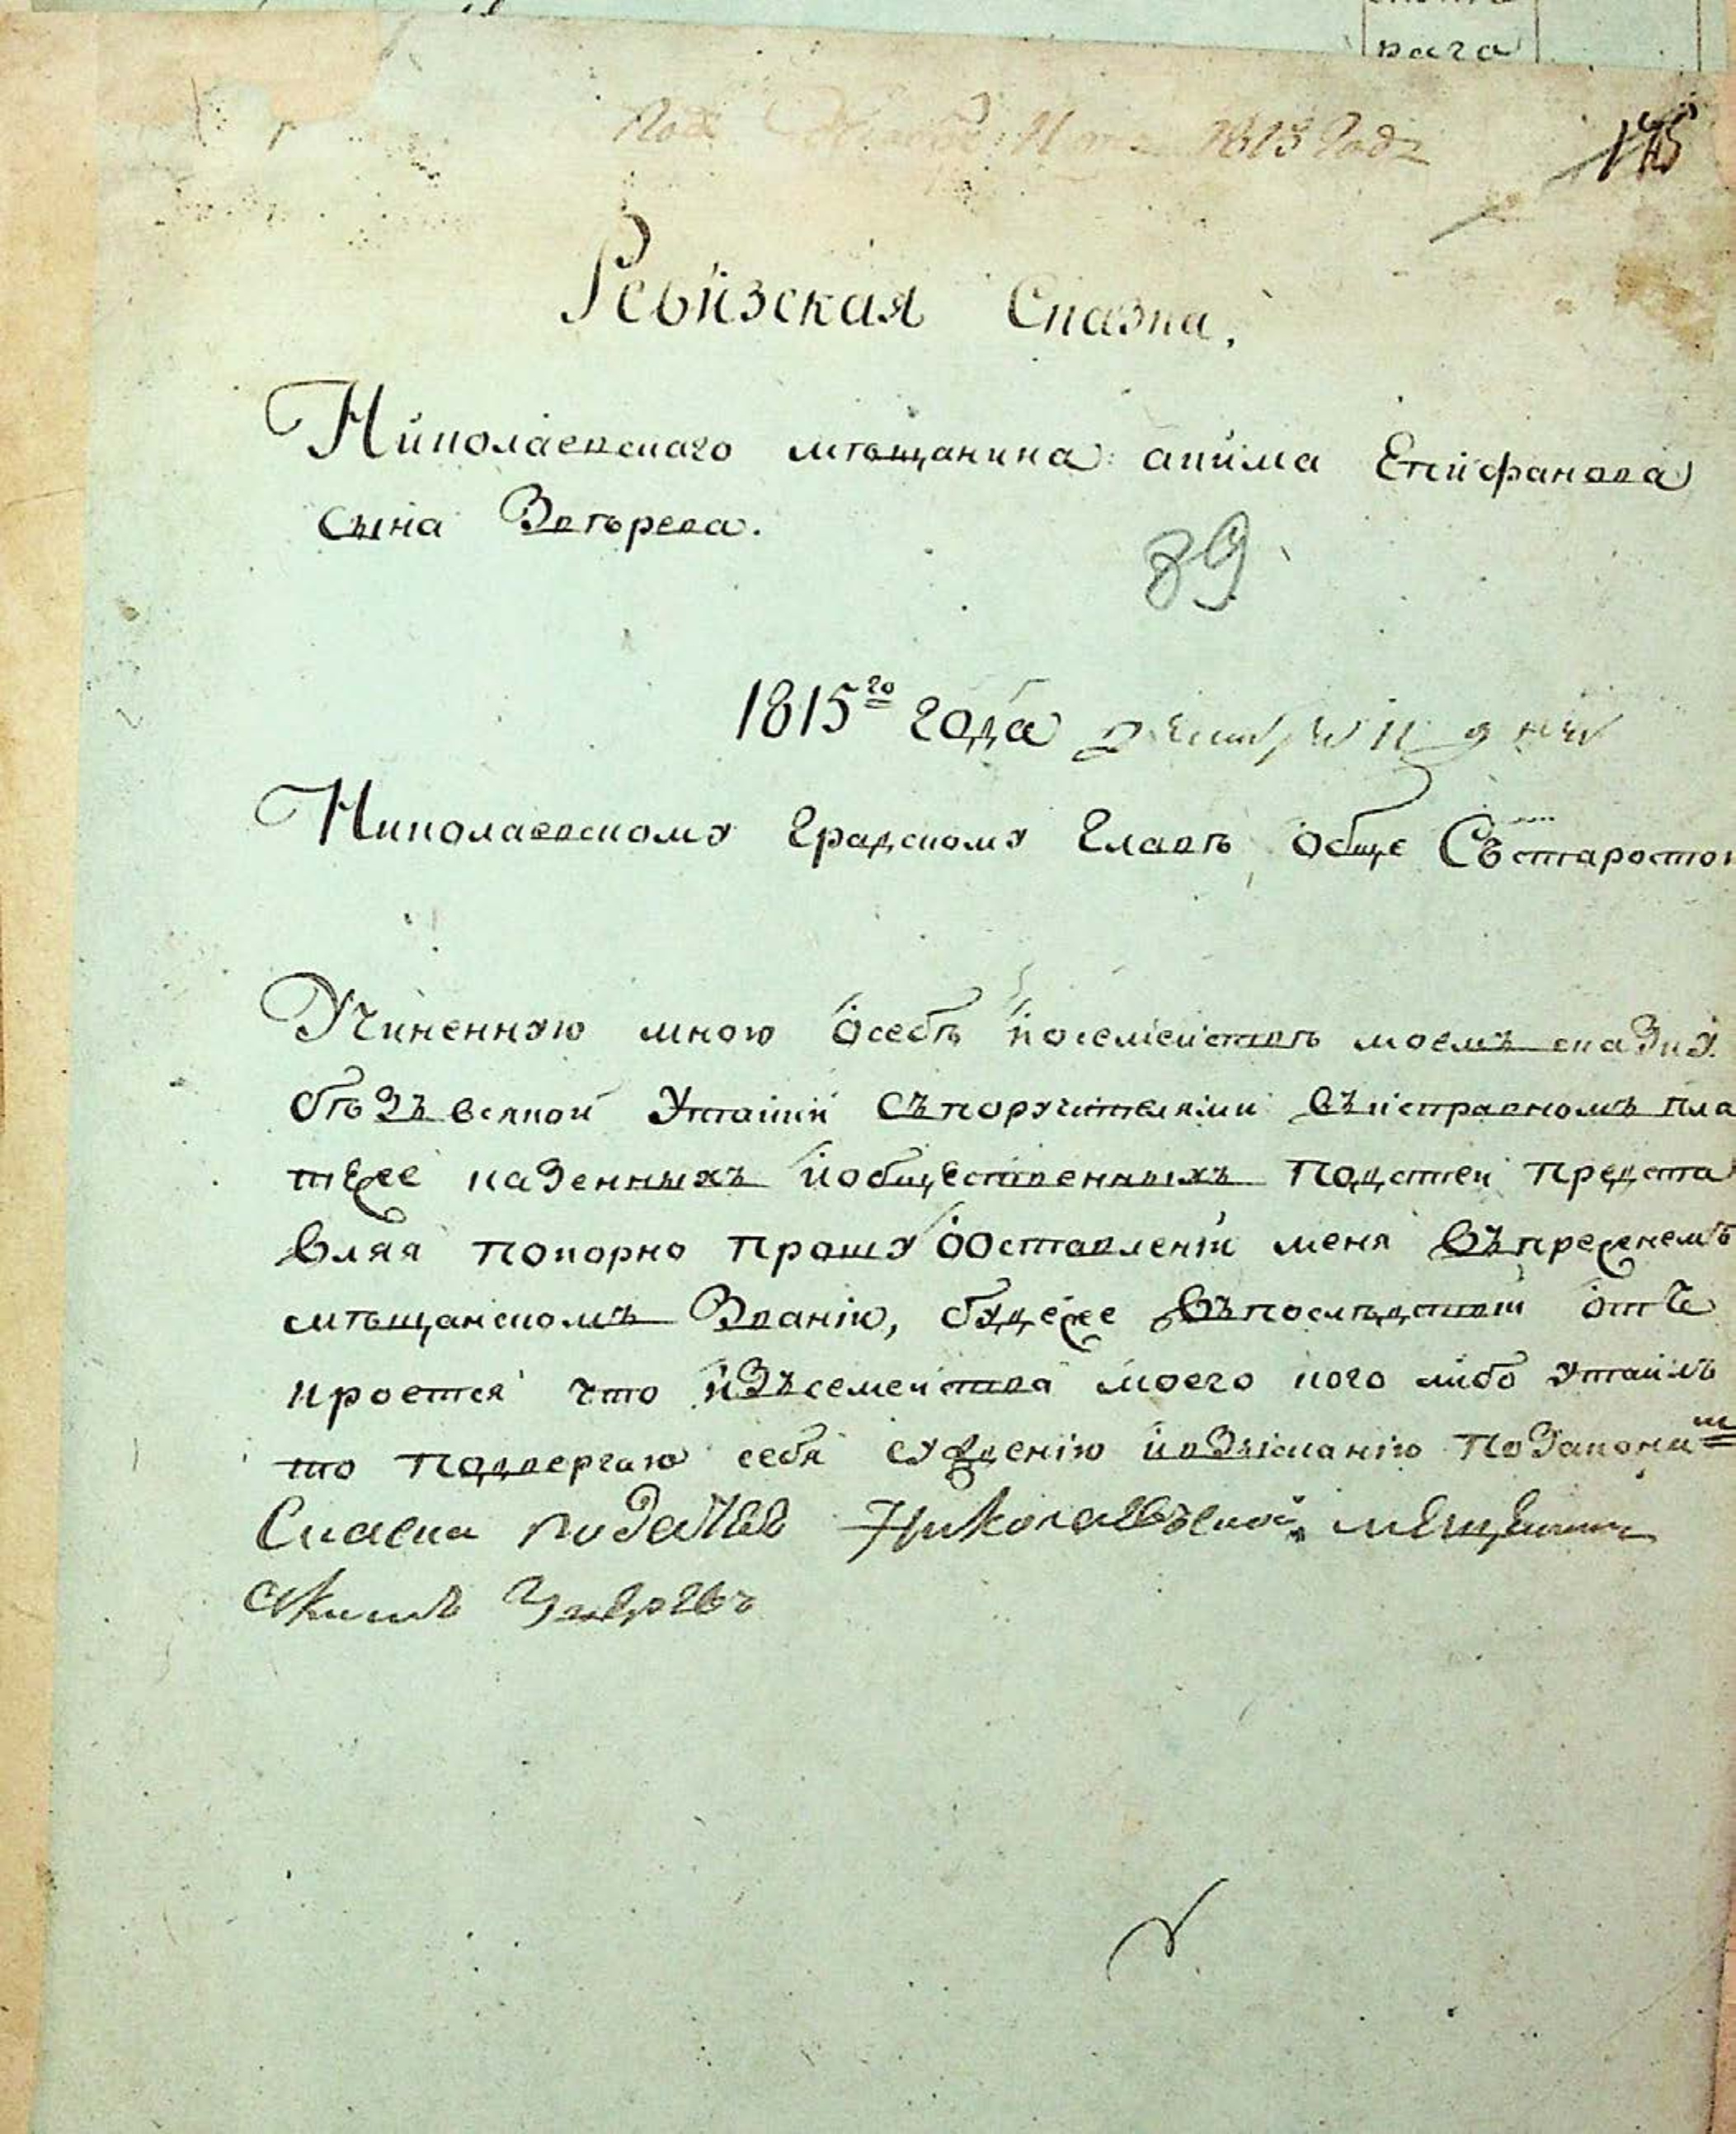 рага
Под 1815 Года
145
Ревизская Сказка.
Николаевскаго мѣщанина акима Епифанова
сына Звѣрева.
89
1815го года декабря 11 дня
Николаевскому Градскому Главѣ обще Състаростою
Учиненную мною осебѣ иосемействѣ моемъ сказку
бѣзъ всякой Утайки съпоручителями въисправномъ пла
теже казенныхъ иобщественныхъ Податей предста
вляя покорно прошу ооставленіи меня въпрежнемъ
мѣщанскомъ Званіи, будеже въпослѣдствіи отъ
кроется что изъсемейства моего кого либо утаилъ
то подвергаю себя сужденію ивзысканію поЗакону
Скаска подалъ Николаевъской мещенинъ
Акимъ Зверевъ